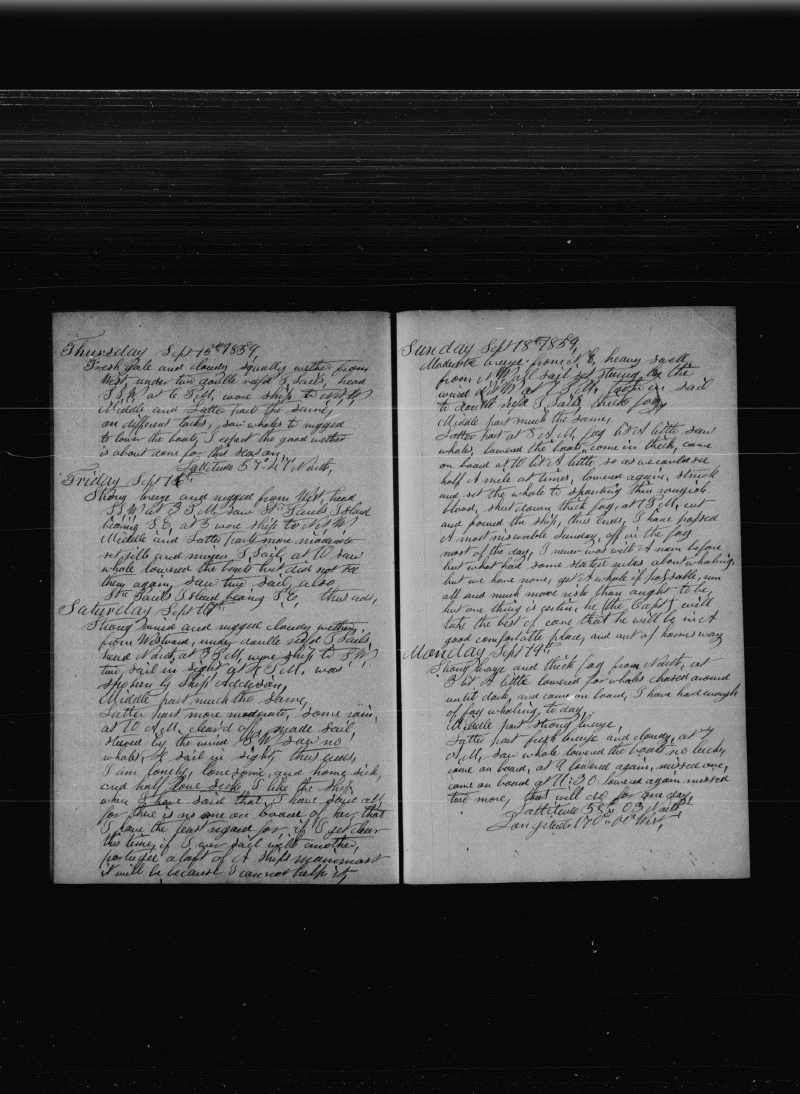 Thursday Sept 15th 1859,
Fresh Gale and cloudy squally wether from
West under two double reefd T. Sails, head
S S W at 6 P.M. wore ship to N N W
Middle and Latter part the same,
on different tacks, saw whales to rugged
to lower the boats, I expect the good wether
is about done for this season,
Lattitude 57°. 47 North,
Friday Sept 16th
Strong breeze and rugged from West, head
S S W at 3 P.M. saw Sts Pauls Island
bearing S E, at 5 wore ship to N N W
Middle and Latter part more moderate
set jibb and mizen T. sail, at 10 saw
whale lowered the boats but did not see
them again, saw two sail, also
Sts Pauls Island bearing S E, thus ends,
Saturday Sept 17th
Strong wind and rugged cloudy wether
from Westward, under double reefd T Sails,
head North, at 3 P.M. wore ship to S W
two sail in sight, at 4 P.M. was
spoken by Ship Addison,
Middle part much the same,
Latter part more moderate, some rain,
at 10 A.M. cleard off, made sail,
steered by the wind S W saw no
whales, A sail in sight, thus ends,
I am lonely, lonesome, and home sick,
and half love sick I like the ship
when I have said that, I have said all,
for there is no one on board of her that
I have the least regard for, if I get clear
this time, if I ever sail with another,
portugee a laft of A ships mainmast
it will be because I cannot help it,
Sunday Sept 18th 1859,
Moderate breeze from N E, heavy swell
from N W, sail in sight by the
wind N N W at 7 P.M. in sail
to double reefd T Sails, thick fog
Middle part much the same,
Latter part at 8 A.M. fog lit A little saw
whales, lowered the boats, come in thick, came
on board at 10 lit A little, so as we could see
half A mile at times, lowered again, struck
and set the whale to spouting thin roughish
blood, shut down thick fog, at 1 P.M. cut
and found the ship, thus ends, I have passed
A most miserable Sunday, off in the fog
most of the day, I never was with A man before
but what had some stated rules about whaling,
but we have none, get A whale if possable, run
all and much more risk than aught to be,
but one thing is certin, he (the Capt) will
take the best of care that he will be in A
good comfortable place, and out of harms way
Monday Sept 19th
Strong breeze and thick fog from North, at
3 lit A little lowered for whales chased around
until dark, and came on board, I have had enough
of fog whaling, to day,
Middle part strong breeze,
Latter part fresh breeze and cloudy, at 7
A.M. saw whale lowered the boats no luck,
came on board, at 9 lowered again, missed one,
came on board at 11:30 lowered again missed
two more, that will do for one day,
Lattitude 58°. 03 North
Longitude 170°. 00 West,